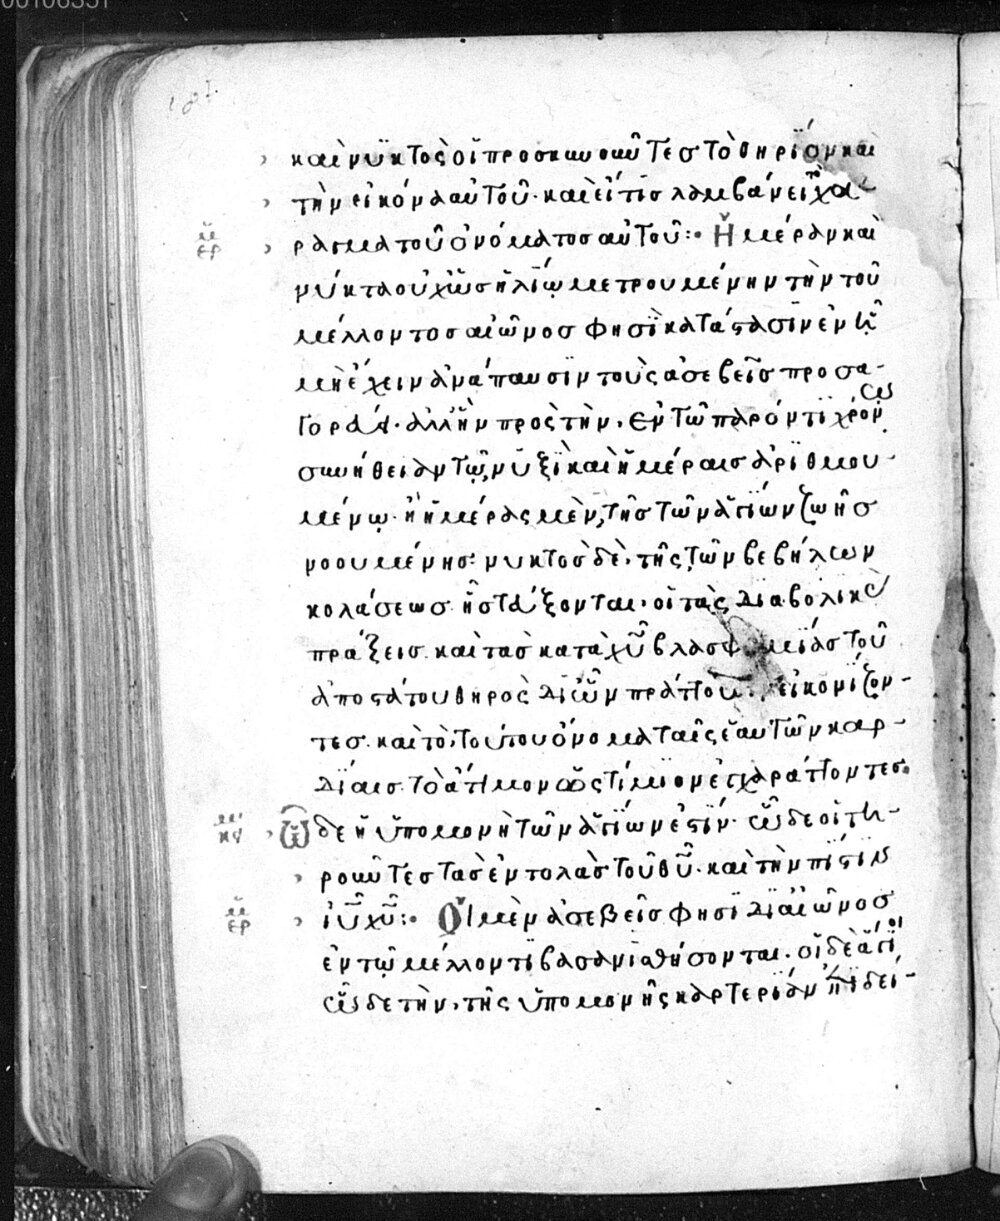 καὶ νϋκτὸς οἱ προσκυνοῦντες τὸ θηρΐον και
τὴν εἰκόνα αὐτοῦ· καὶ εἴ τισ λαμβάνει τὸ χά-
ραγμα τοῦ ὀνόματοσ αὐτοῦ:· Ἡμέραν καὶ
νύκτα οὐχ ὡσ ἡλίῳ μετρουμένην τὴν τοῦ
μέλλοντοσ αἰῶνοσ φησὶ κατάστασϊν ἐν ᾗ
μὴ ἔχειν ἀνάπαυσϊν τοὺς ἀσεβεῖσ προσα-
γορά· ἀλλ' ἢν πρὸς τὴν, ἐν τῶ παρόντϊ χρόνῳ
συνήθειαν τῶ, νυξὶ καὶ ἡμέραισ ἀρϊθμου-
μένῳ· ἢ ἡμέρας μὲν, τῆσ τῶν ἁγΐων ζωῆσ
νοουμένησ· νυκτοσ δὲ, τῆς τῶν βεβήλων
κολάσεωσ ἧσ τεύξονται, οἱ τὰς διαβολϊκὰς
πράξεισ καὶ τὰσ κατὰ χυ βλασφημΐασ τοῦ
ἀποστάτου θηρὸς δι' ὧν πράττου εἰκονίζον-
τεσ. καὶ τὸ, τούτου ὄνομα ταῖς ἑαυτῶν καρ-
δΐαισ. τὸ ἄτιμον ὡς τίμϊον ἐγχαράττοντεσ.
μ κγ Ὧδε ἡ ὑπομονὴ τῶν ἁγΐων ἐστΐν· ὧδε οἱ τη-
ροῦντεσ τὰσ ἐντολὰσ τοῦ θυ· καὶ τὴν πίστιν
ἰυ χυ:· Οἱ μὲν ἀσεβεῖσ φησϊ δι' αἰῶνοσ
ἐν τῶ μέλλοντϊ βασανϊσθήσονται. οἱ δὲ ἅγϊοι
ὧδε τὴν, τῆς ὑπομονῆς καρτερΐαν ἐπιδεί-